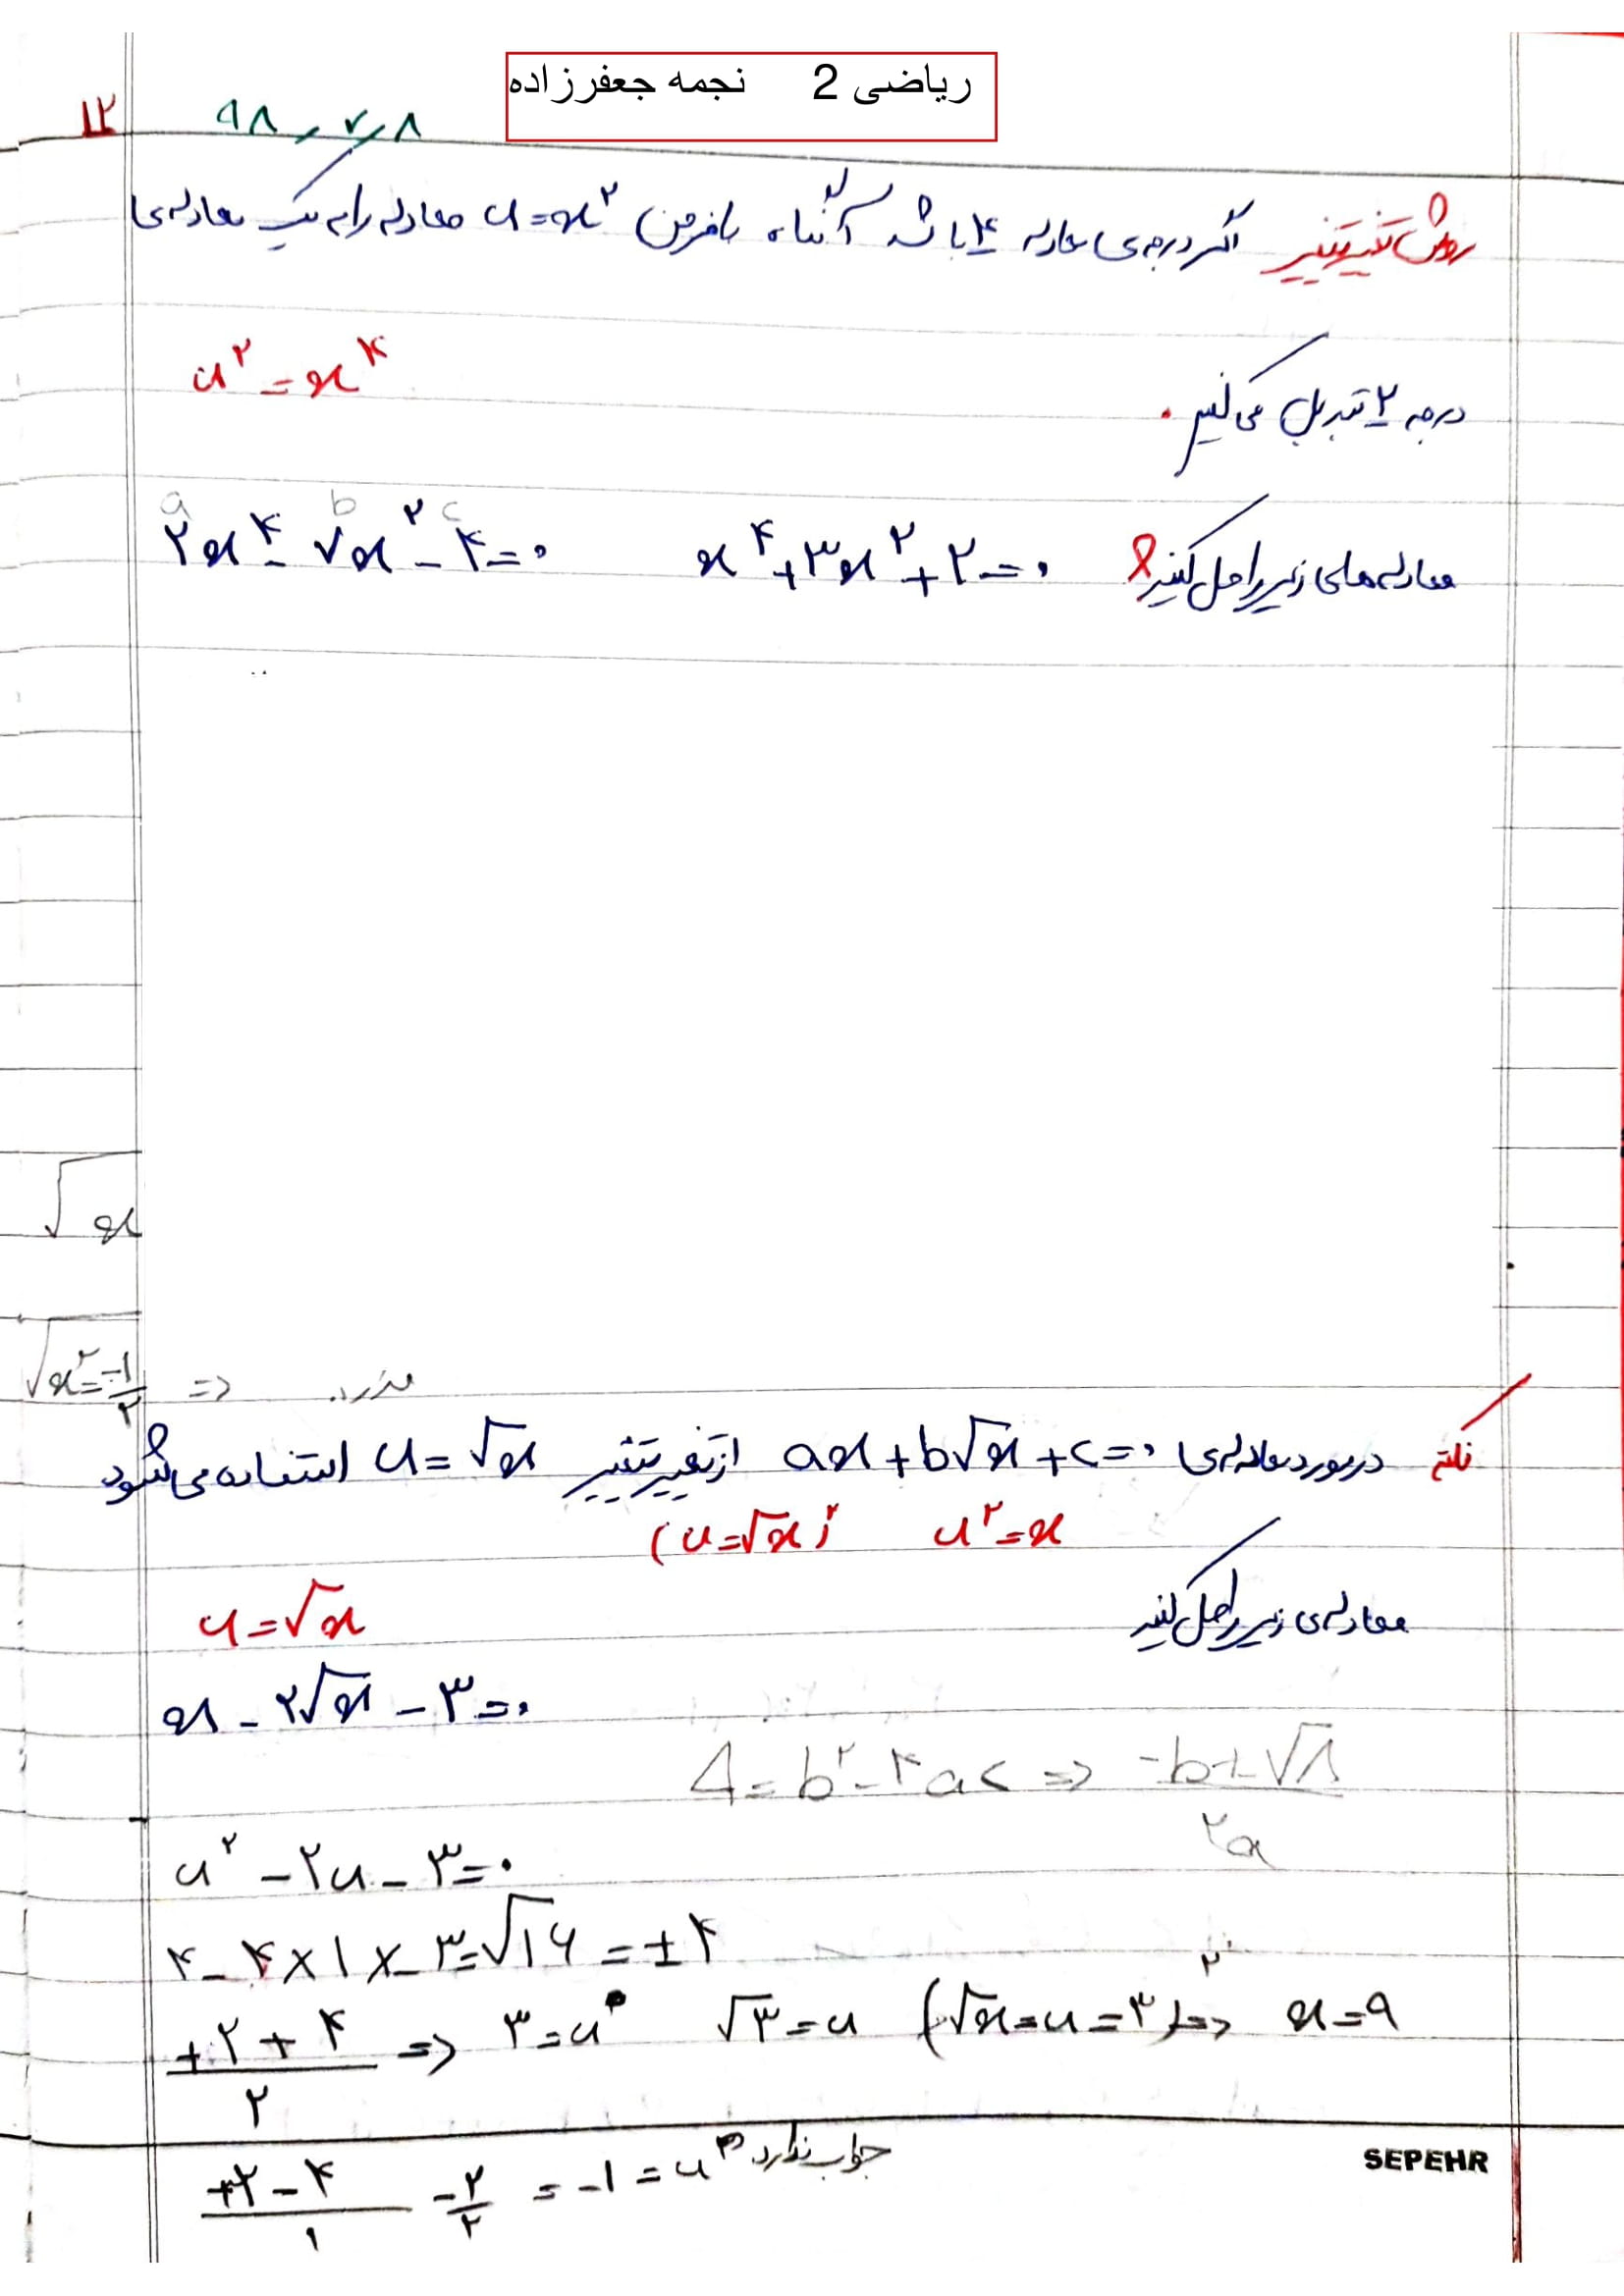 ریاضی 2 نجمه جعفرزاده
۱۲ ۹۸٫۷٫۸
روش تغییر متغیر اگر درجه‌ی معادله ۴ باشد آنگاه با فرض u=x² معادله را به یک معادله‌ی
درجه ۲ تبدیل می‌کنیم. u²=x⁴
معادله‌های زیر را حل کنید x⁴+۳x²+۲=۰ ۲x⁴-۷x²-۴=۰
a b c
√x
√x²=-۱/۲ => ندارد
نکته در مورد معادله‌ی ax+b√x+c=۰ از تغییر متغیر u=√x استفاده می‌شود
(u=√x)² u²=x
معادله‌ی زیر را حل کنید
u=√x
x-۲√x-۳=۰
Δ=b²-۴ac => -b±√Δ/۲a
u²-۲u-۳=۰
۴-۴×۱×-۳=√۱۶=±۴
+۲+۴/۲ => ۳=u √۳=u (√x=u=۳)² => x=۹
+۲-۴/۱ -۲/۲ =-۱=u جواب ندارد
SEPEHR